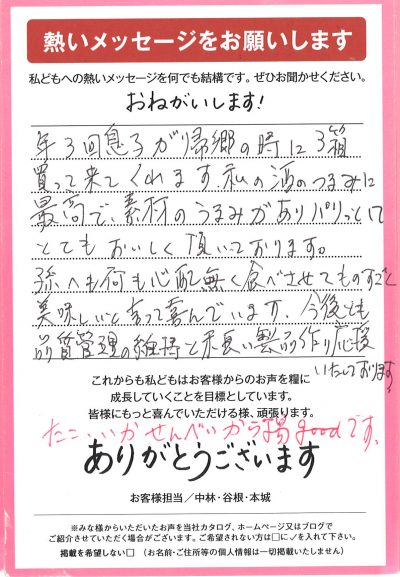 熱いメッセージをお願いします
私どもへの熱いメッセージを何でも結構です。ぜひお聞かせください。
おねがいします!
年3回息子が帰郷の時に3箱
買って来てくれます、私の酒のつまみに
最高で、素材のうまみがありパリっとして
とてもおいしく頂いております。
孫へも何も心配無く食べさせてものすごく
美味しいと言って喜んでいます、今後とも
品質管理の維持と末長い製品作り応援
いたしております
これからも私どもはお客様からのお声を糧に
成長していくことを目標としています。
皆様にもっと喜んでいただける様、頑張ります。
たこ、いかせんべいから揚goodです、
ありがとうございます
お客様担当/中林・谷根・本城
※みな様からいただいたお声を当社カタログ、ホームページ又はブログで
ご紹介させていただく場合がございます。ご希望されない方は□に✓を入れて下さい。
掲載を希望しない□ (お名前・ご住所等の個人情報は一切掲載いたしません)